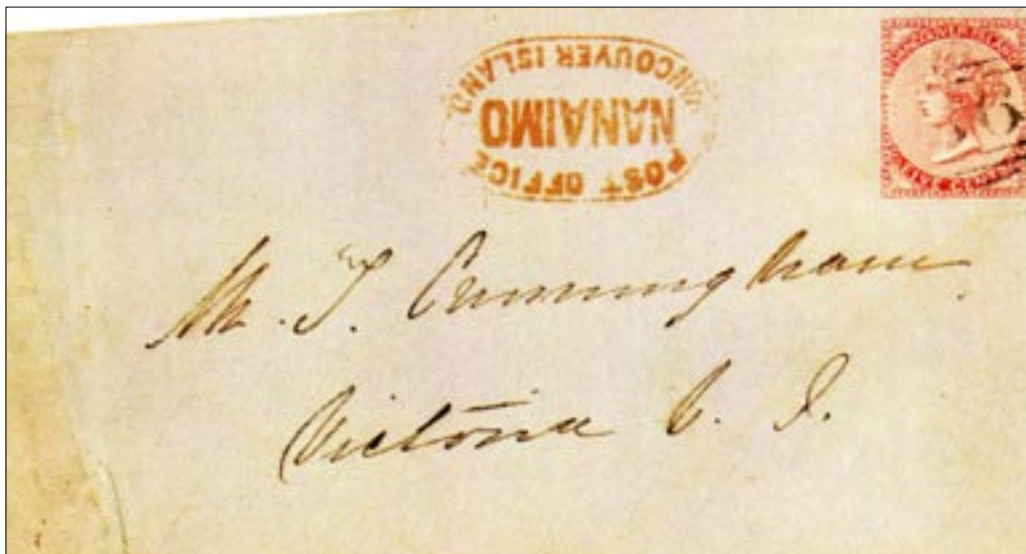 POST OFFICE
NANAIMO
VANCOUVER ISLAND
VANCOUVER ISLAND
FIVE CENTS
Mr. T. Cunningham
Victoria V. I.